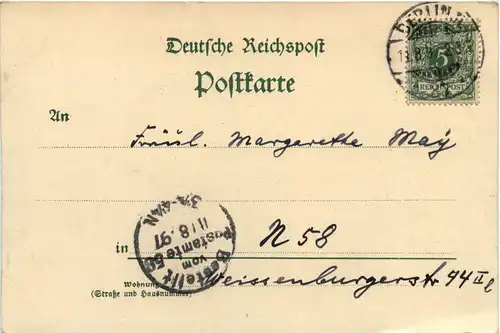 Deutsche Reichspost
Postkarte
BERLIN
5
REICHSPOST
An
Fräul. Margarethe May
Bestellt
vom
Postamte 58
11/8.97
in
N 58
Weissenburgerstr 44 II l
Wohnung
(Straße und Hausnummer)